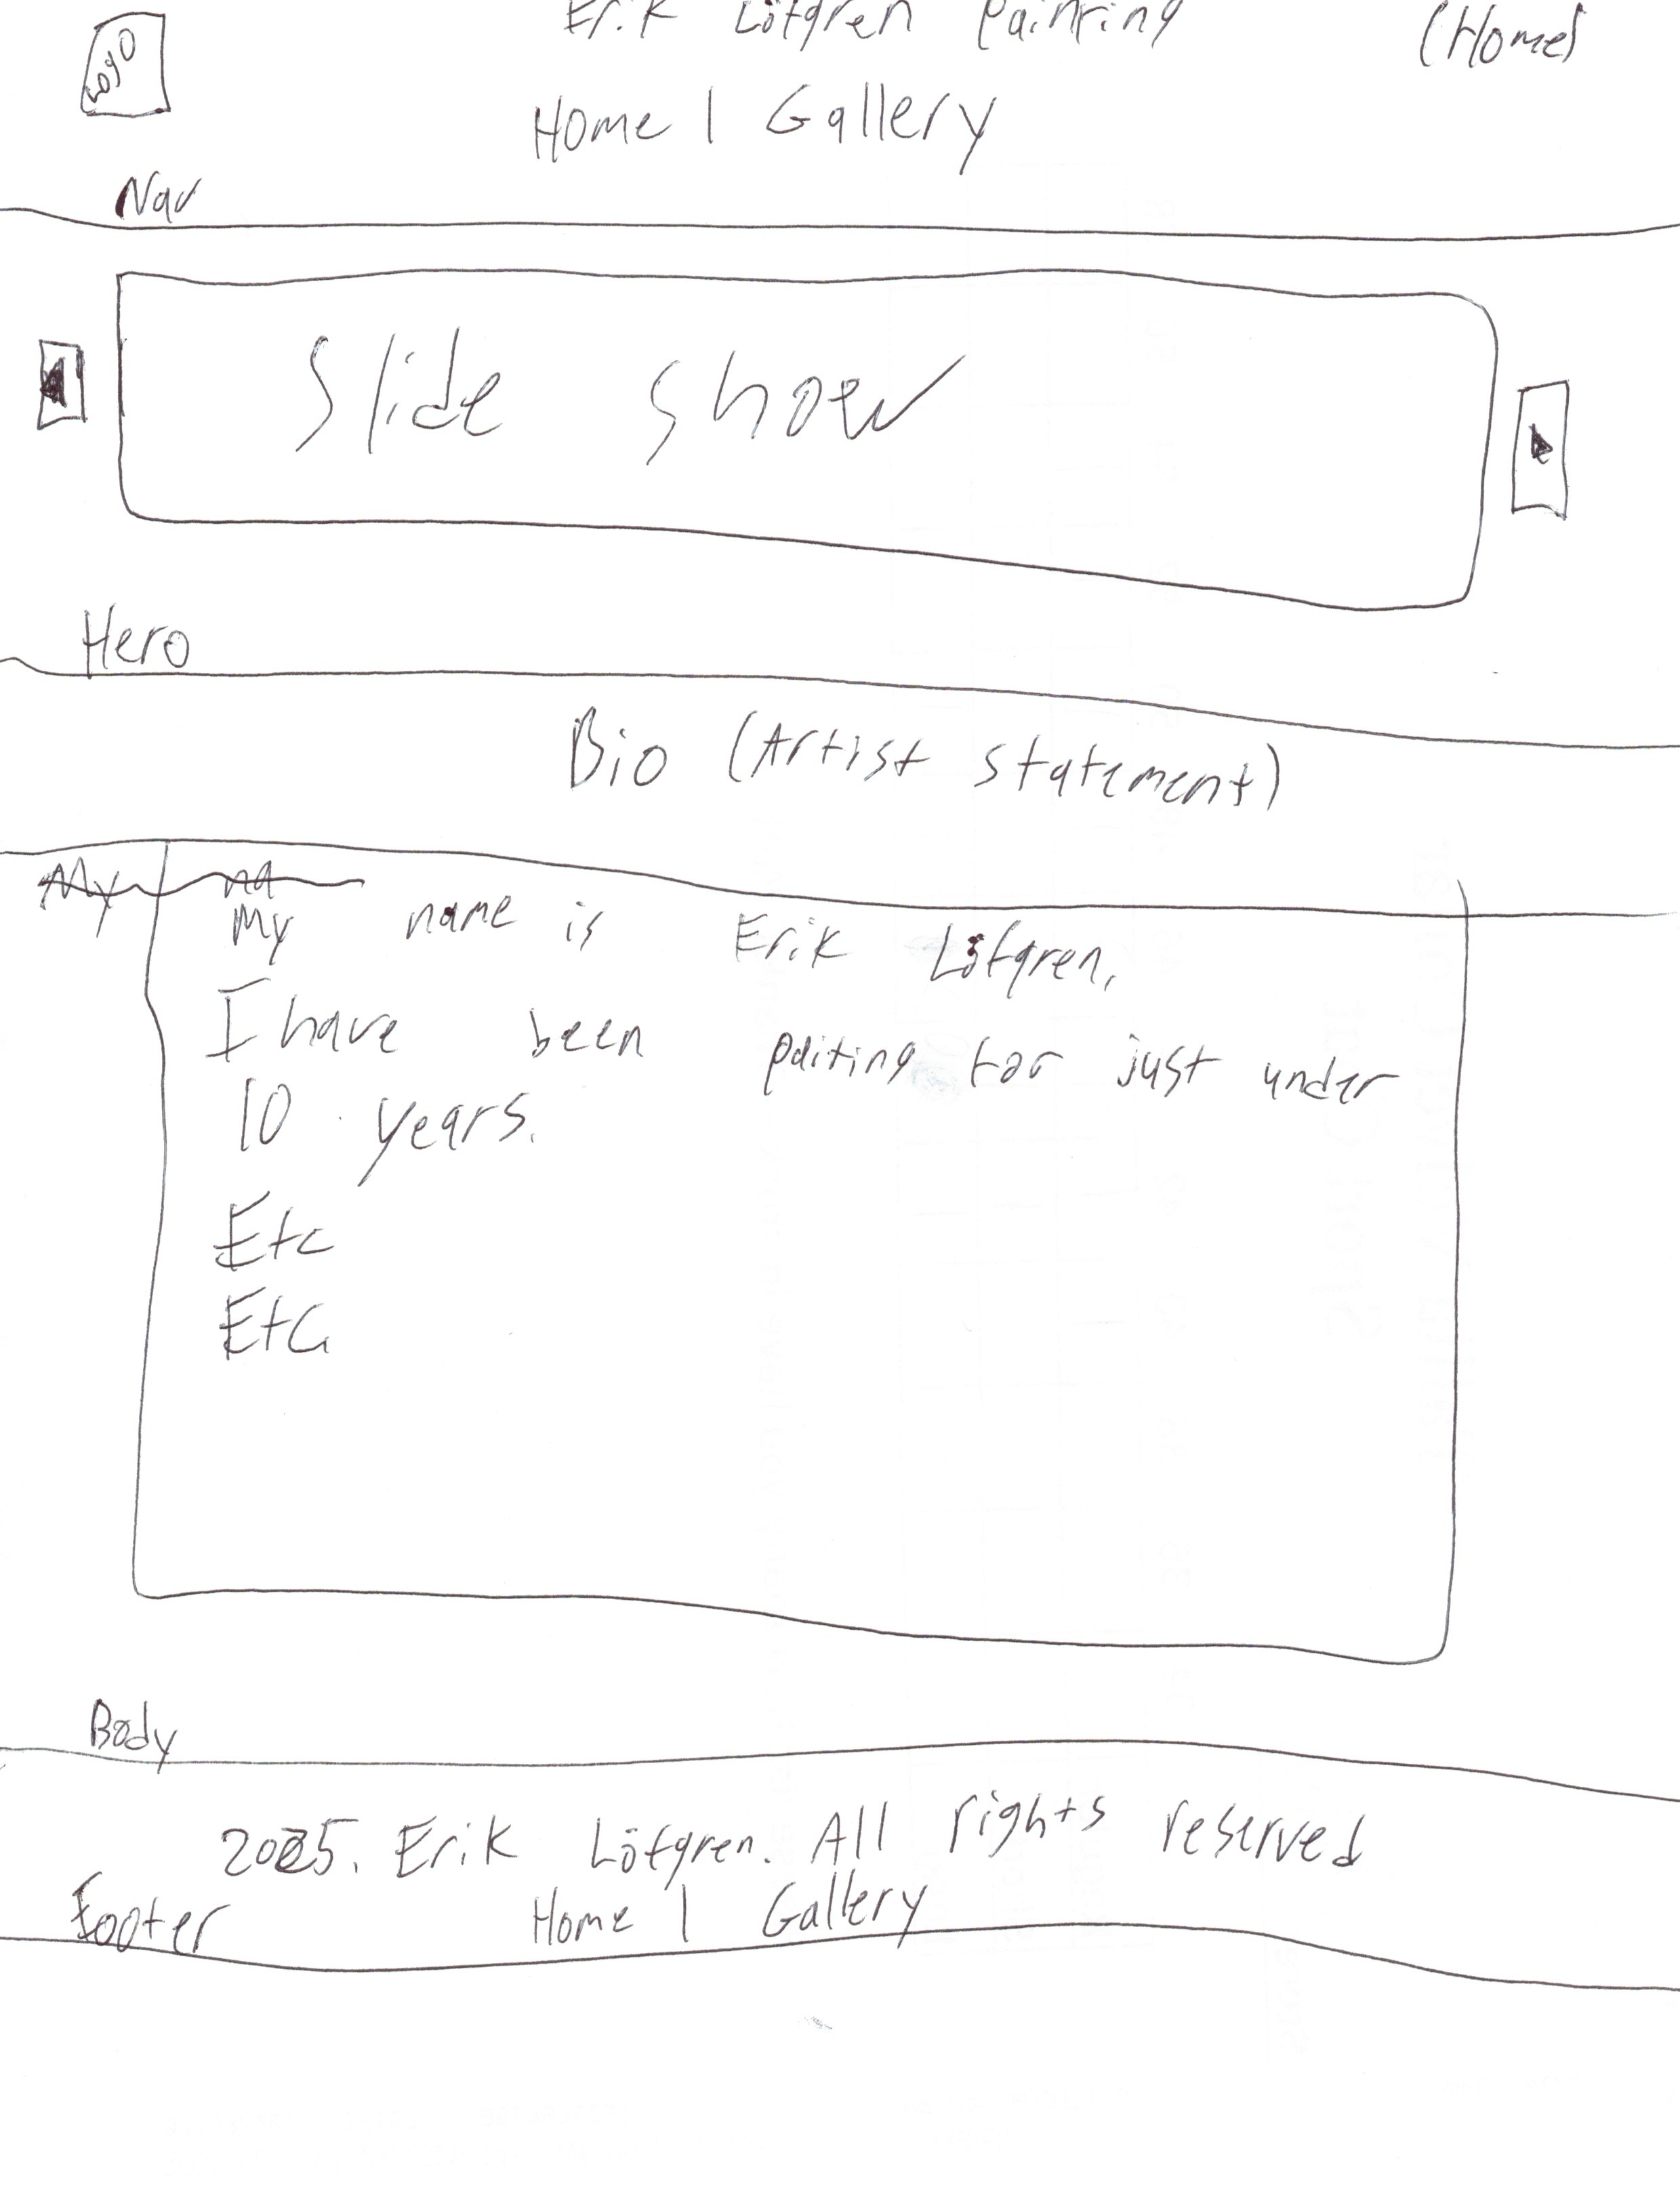 Logo
Erik Löfgren Painting (Home)
Home | Gallery
Nav
Slide show
Hero
Bio (Artist statement)
My na
My name is Erik Löfgren,
I have been paiting for just under
10 years.
Etc
Etc
Body
2025. Erik Löfgren. All rights reserved
Footer Home | Gallery